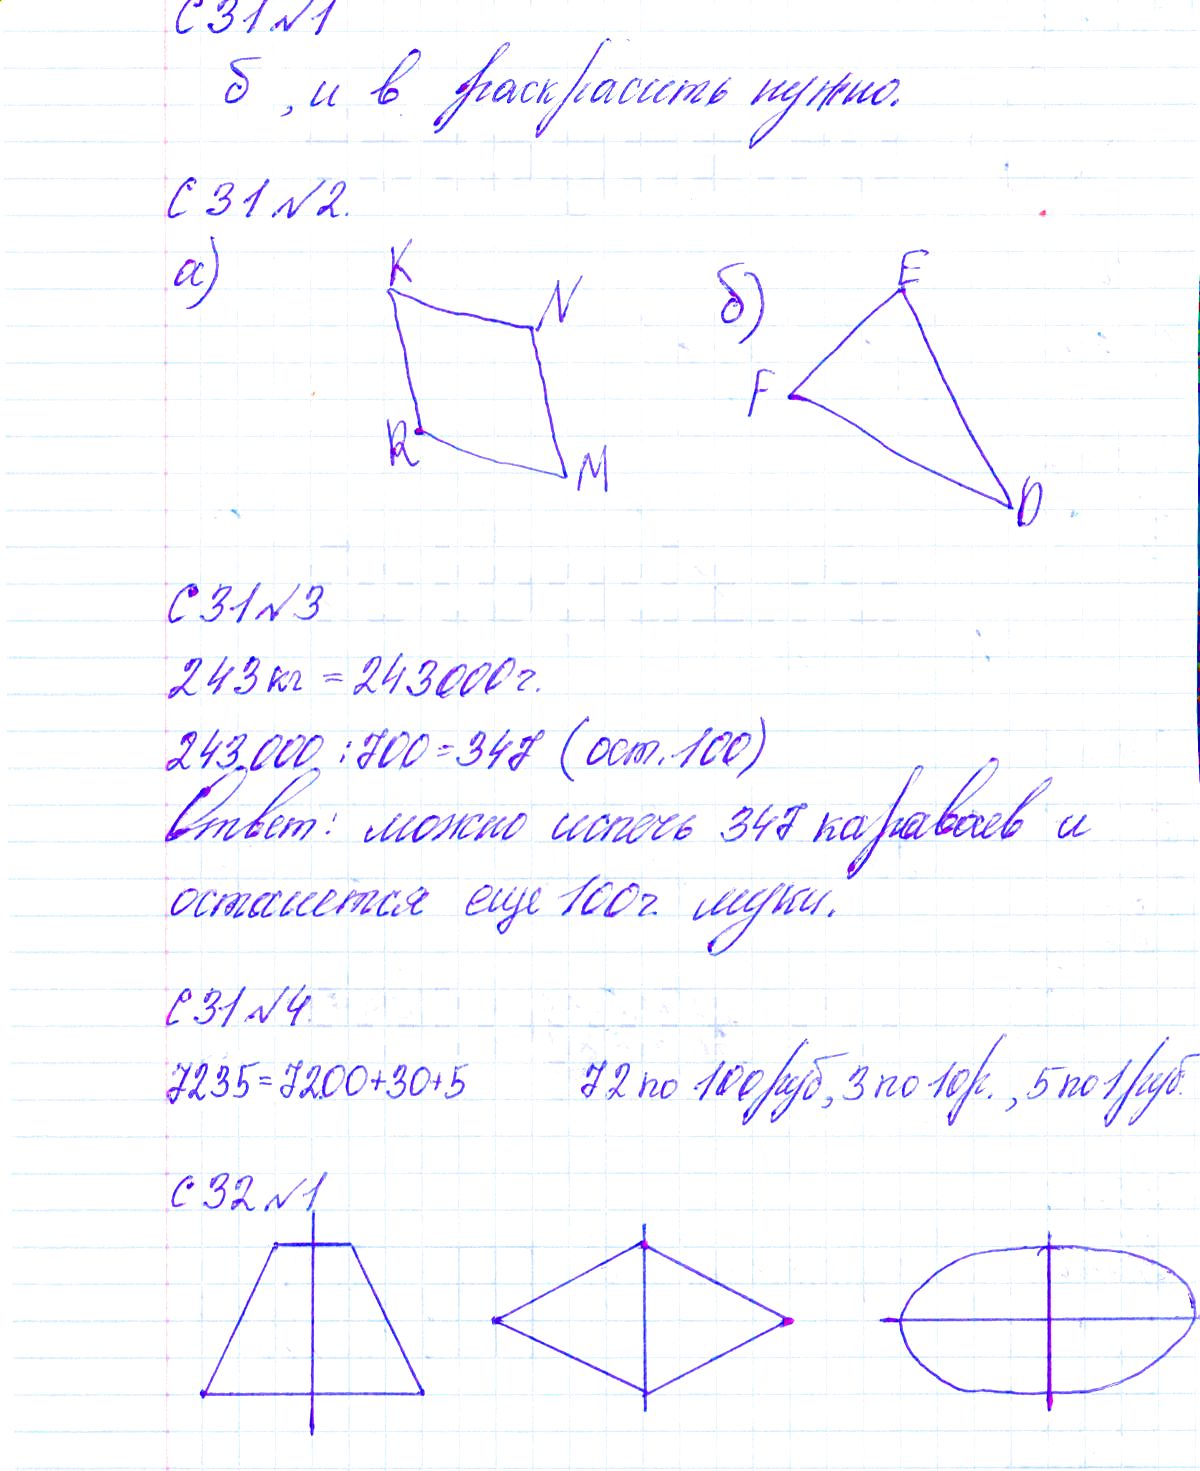 С 31 №1
б, и в раскрасить нужно.
С 31 №2.
а)
К
N
R
М
б)
E
F
D
С 31 №3
243 кг = 243000 г.
243000 : 700 = 347 (ост. 100)
Ответ: можно испечь 347 караваев и
останется еще 100 г. муки.
С 31 №4
7235 = 7200 + 30 + 5 72 по 100 руб, 3 по 10 р., 5 по 1 руб.
С 32 №1